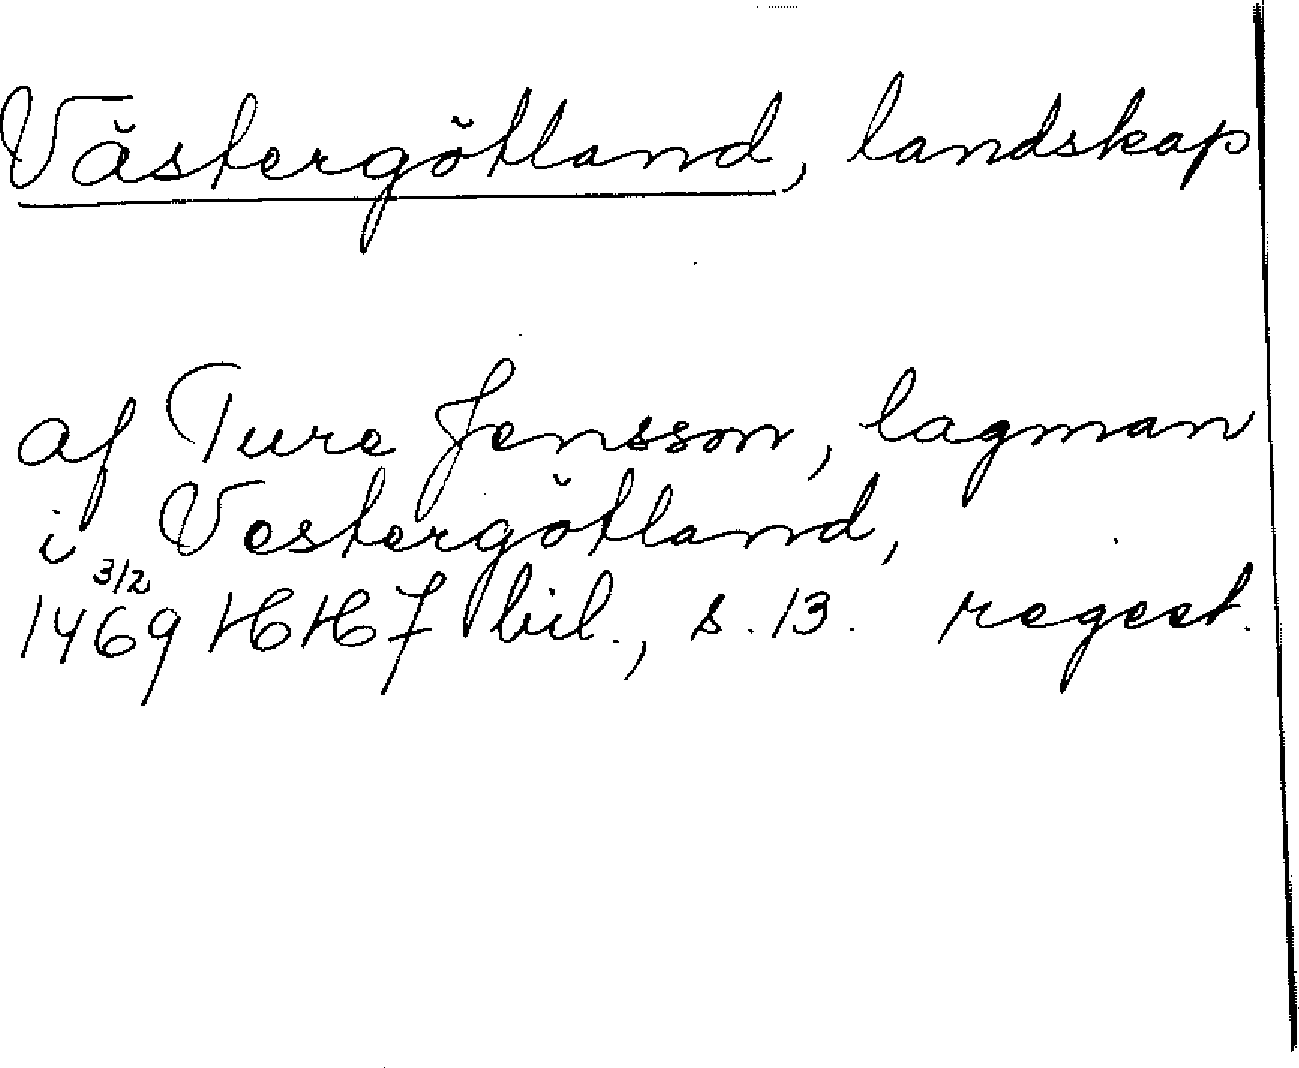 Västergötland, landskap
af Ture Jensson, lagman
i Vestergötland,
3/2
1469 HH 7 bil., s. 13. regest.